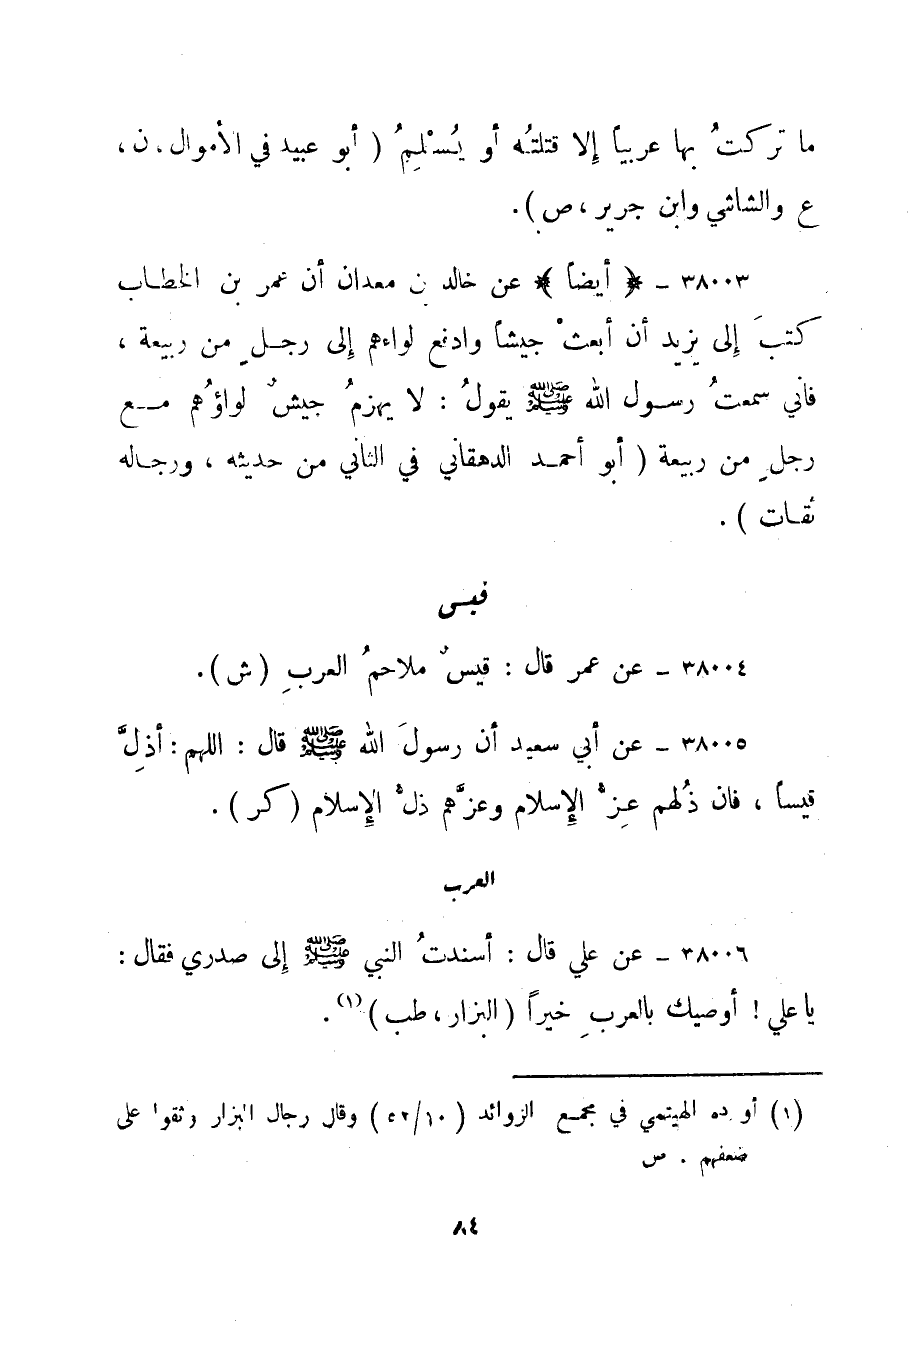 ما تركتُ بها عربياً إلا قتلتُه أو يُسْلِمُ ( أبو عبيد في الأموال . ن ،
ع والشاشي وابن جرير ، ص ) .
٣٨٠٠٣ ــ ﴿ أيضاً ﴾ عن خالد بن معدان أن عمر بن الخطاب
كتبَ إلى يزيد أن أبعثْ جيشاً وادفع لواءهم إلى رجلٍ من ربيعة ،
فاني سمعتُ رسول الله ﷺ يقولُ : لا يهزمُ جيشٌ لواؤهُم مع
رجلٍ من ربيعة ( أبو أحمد الدهقاني في الثاني من حديثه ، ورجاله
ثقات ) .
قيس
٣٨٠٠٤ ــ عن عمر قال : قيسٌ ملاحمُ العربِ ( ش ) .
٣٨٠٠٥ ــ عن أبي سعيد أن رسولَ الله ﷺ قال : اللهم : أذلَّ
قيساً ، فان ذُلهم عِزُّ الإِسلام وعزَّهم ذلُّ الإِسلام ( كر ) .
العرب
٣٨٠٠٦ ــ عن علي قال : أسندتُ النبي ﷺ إلى صدري فقال :
يا علي ! أوصيك بالعربِ خيراً ( البزار ، طب )(١) .
(١) أورده الهيثمي في مجمع الزوائد ( ٥٢/١٠ ) وقال رجال البزار وثقوا على
ضعفهم . ص
٨٤